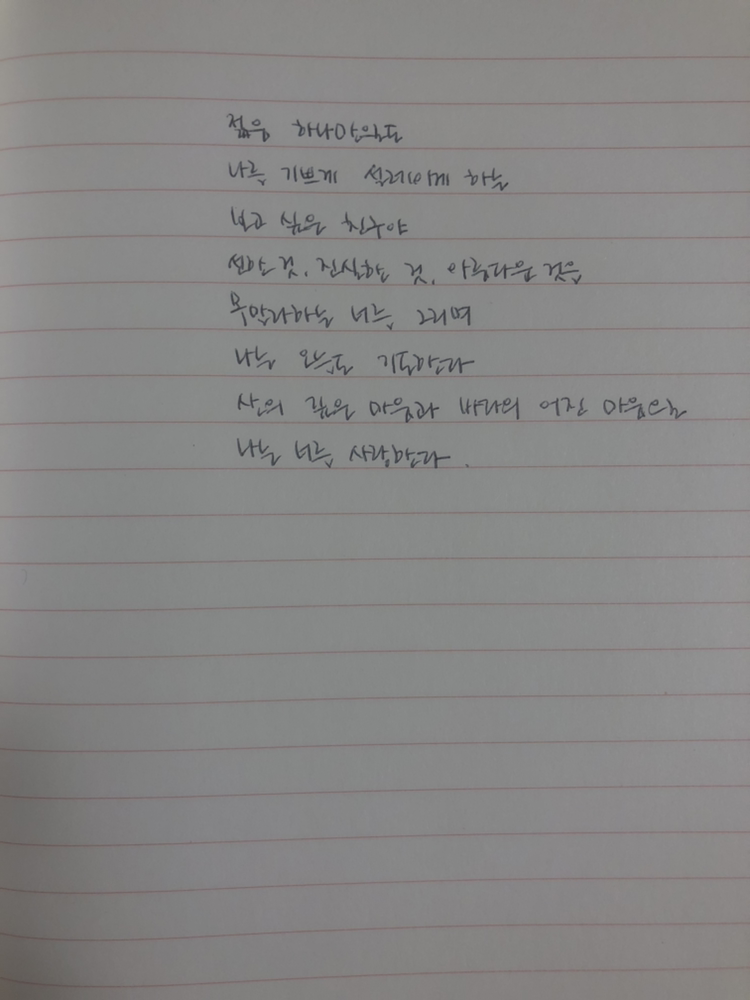 젊음 하나만으로도
나를 기쁘게 설레이게 하는
보고 싶은 친구야
선한 것, 진실한 것, 아름다운 것을
목말라하는 너를 그리며
나는 오늘도 기도한다
산의 깊은 마음과 바다의 어진 마음으로
나는 너를 사랑한다.